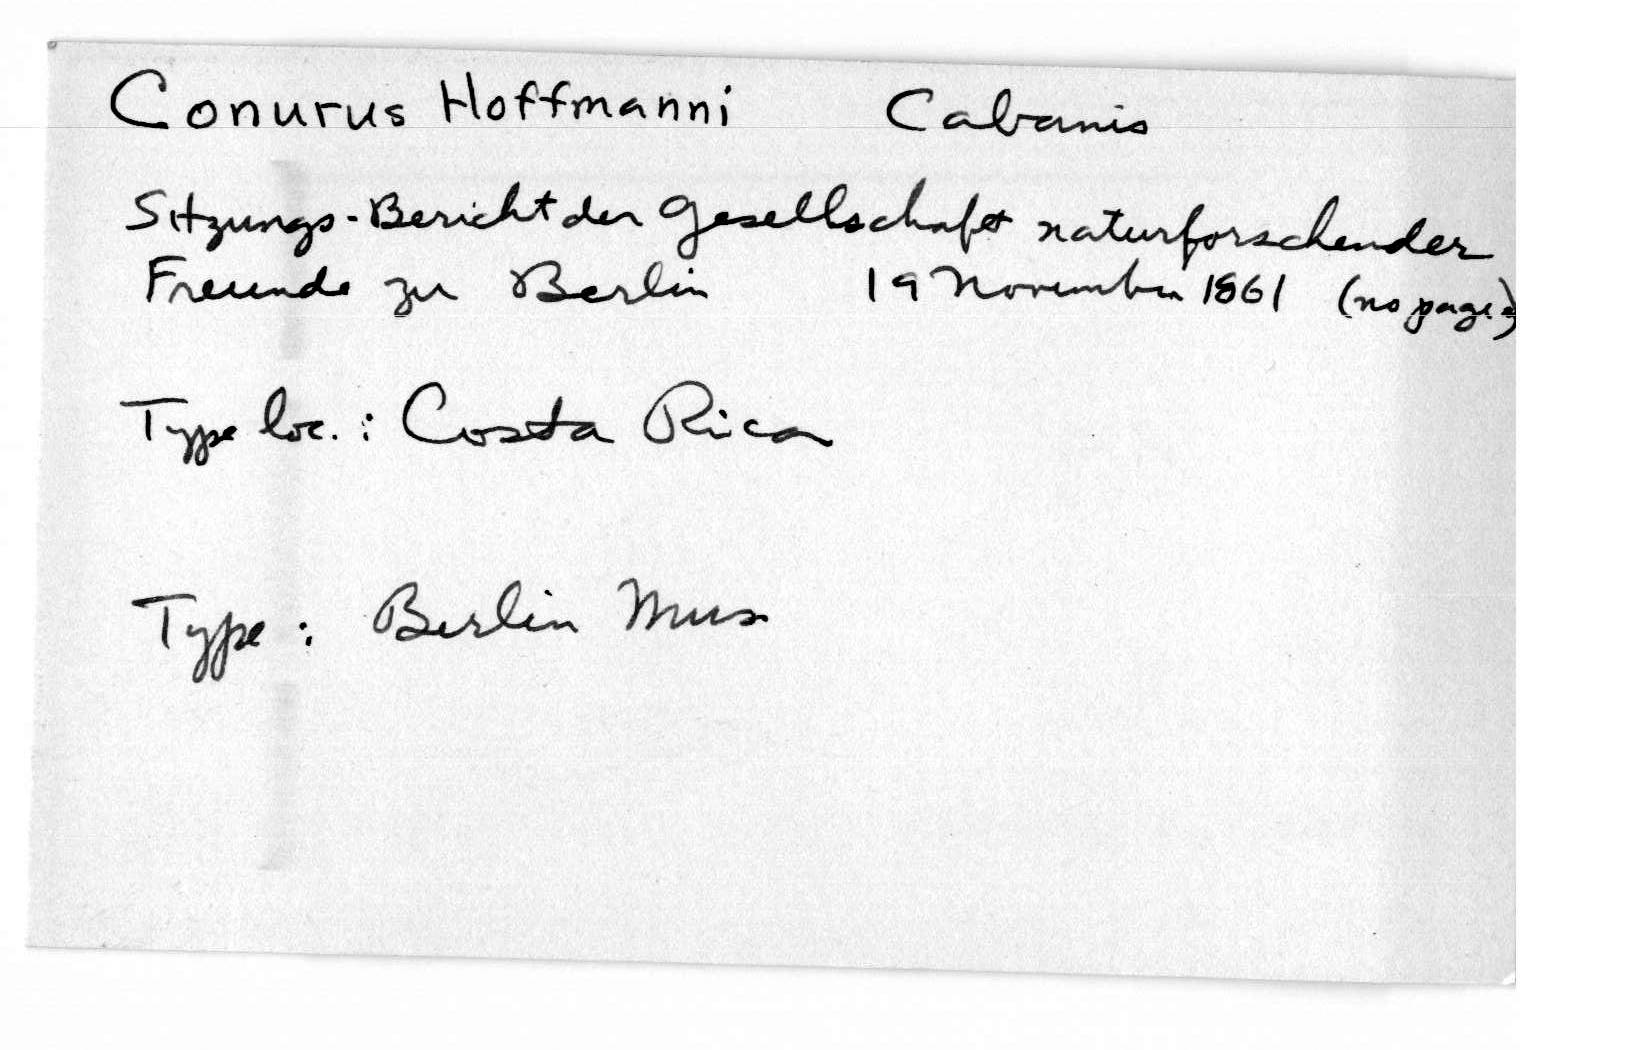 Conurus Hoffmanni Cabanis
Sitzungs-Bericht der Gesellschaft naturforschender
Freunde zu Berlin 19 November 1861 (no page)
Type loc. : Costa Rica
Type : Berlin Mus